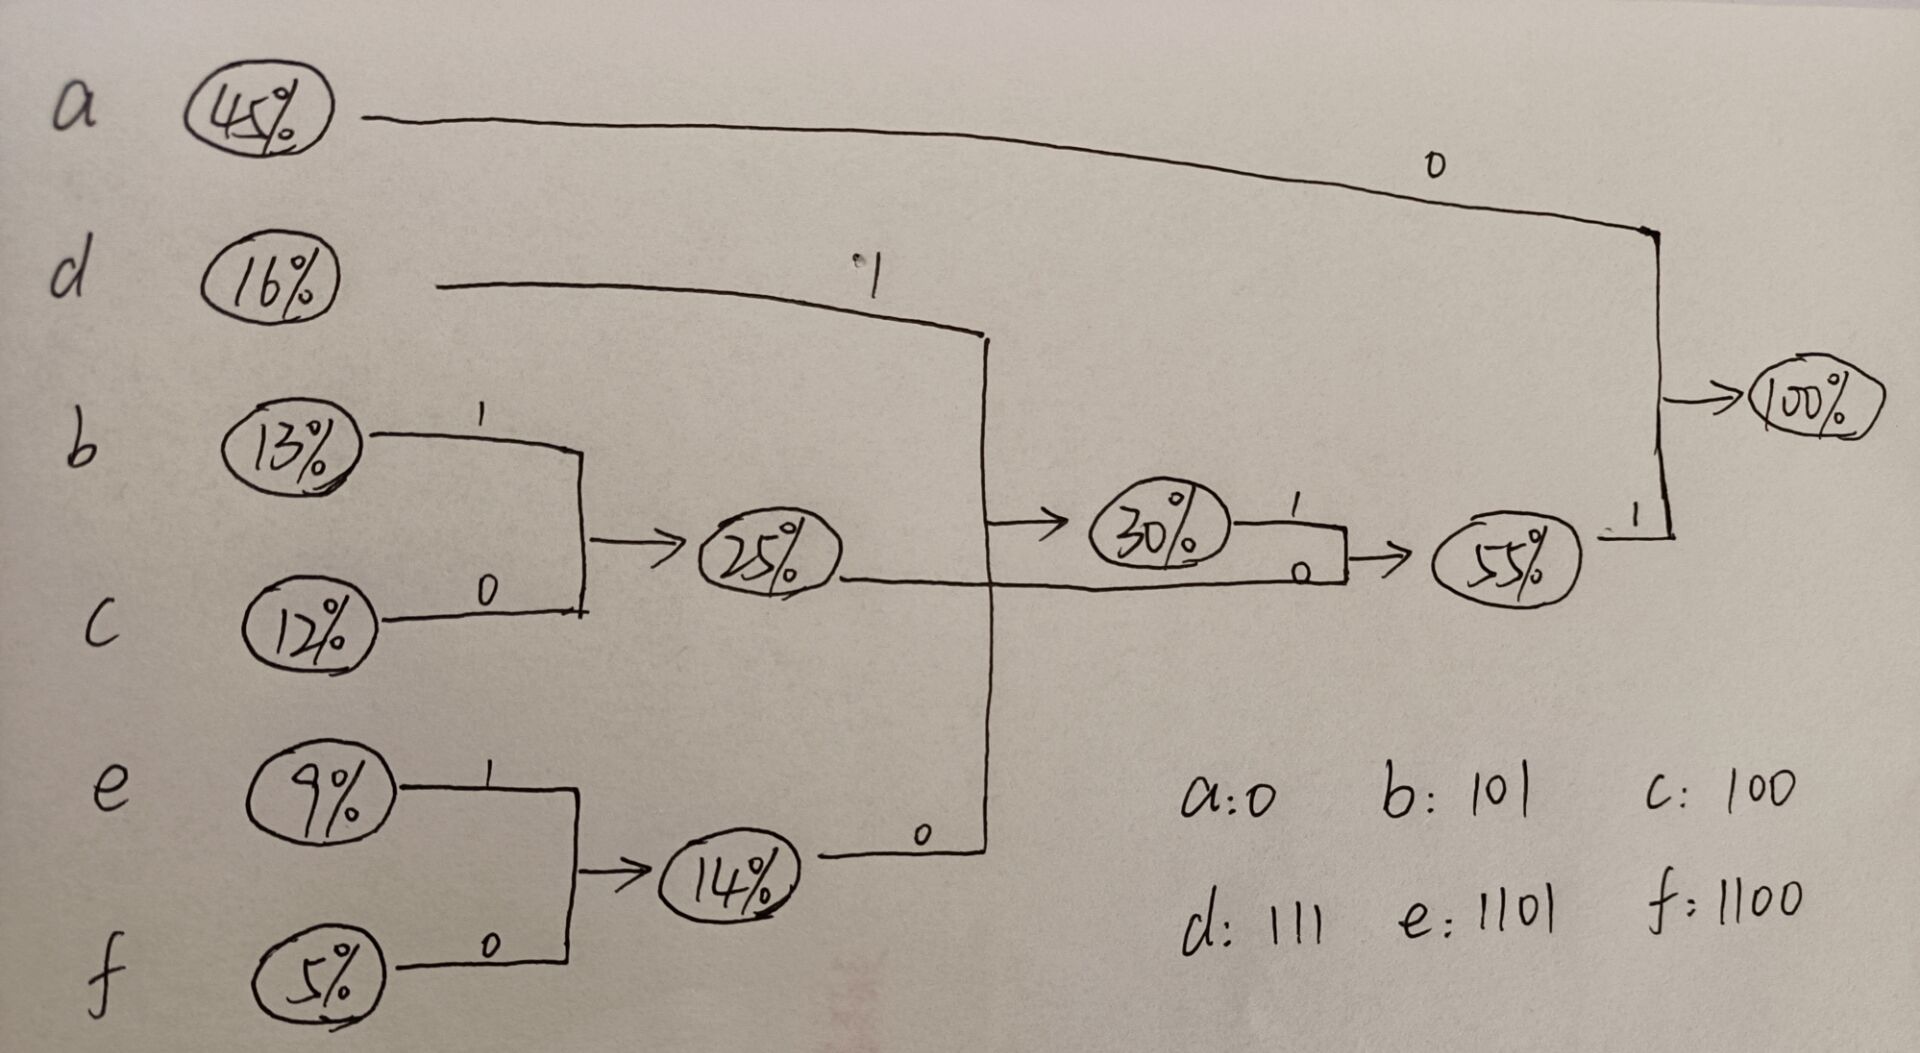 a 45% 0
d 16% 1
b 13% 1
100%
30% 1
25% 0 55% 1
c 12% 0
e 9% 1
a:0 b: 101 c: 100
14% 0
d: 111 e: 1101 f: 1100
f 5% 0